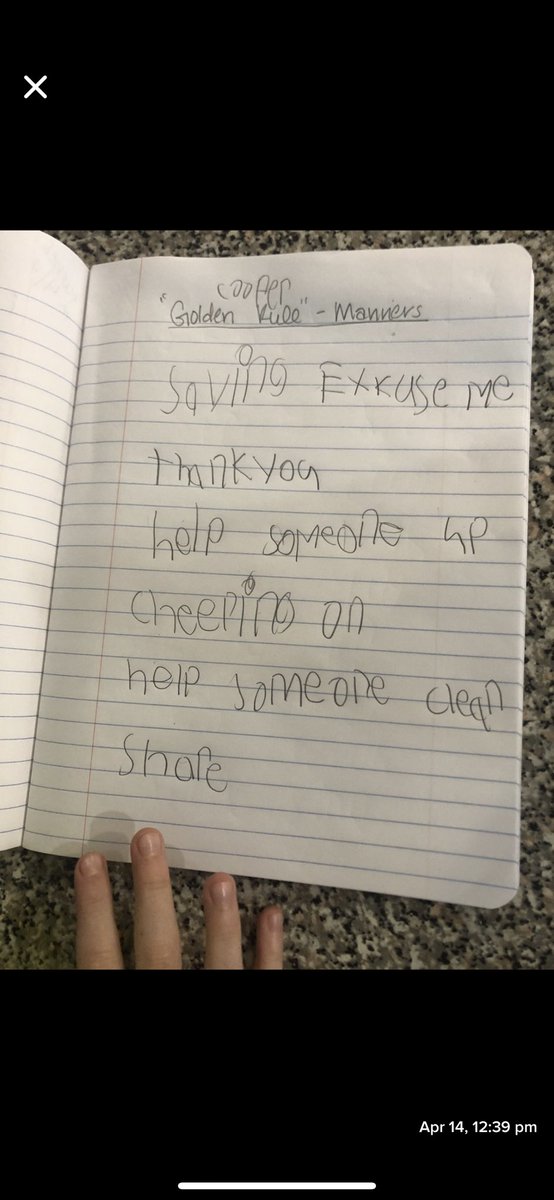 cooper
"Golden Rule" - Manners
Saying Exkuse me
thank you
help someone up
cheering on
help someone clean
Share
Apr 14, 12:39 pm